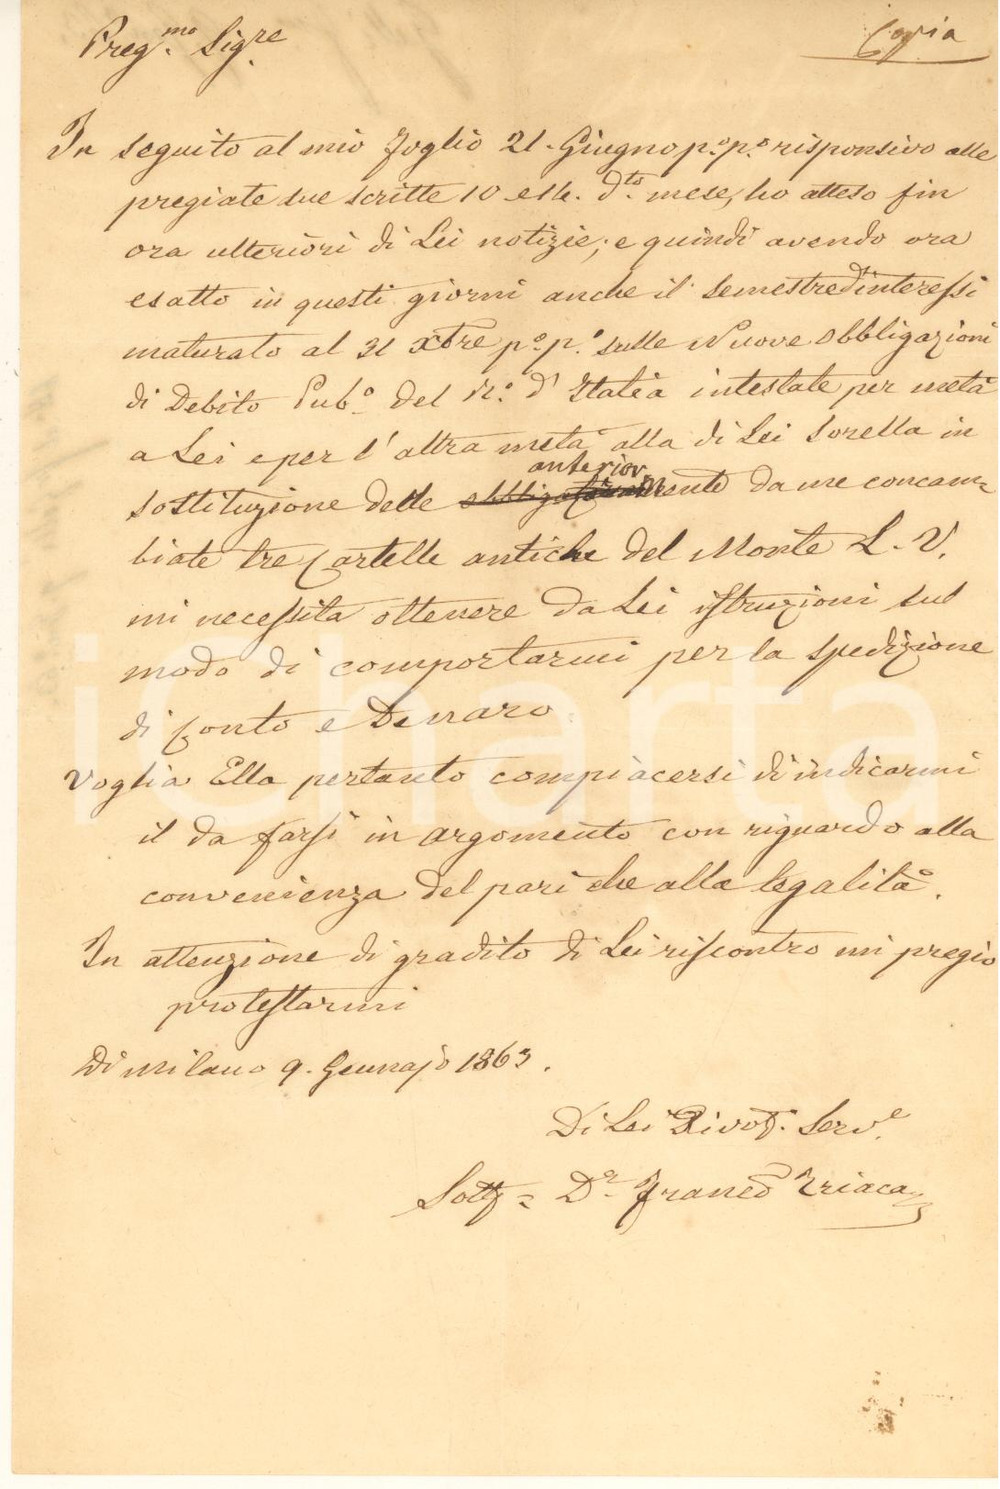 Copia
Preg.mo Sig.re
In seguito al mio foglio 21. Giugno p.o p.o risponsivo alle
pregiate sue scritte 10 e 14. d.to mese, ho atteso fin
ora ulteriori di Lei notizie; e quindi avendo ora
esatto in questi giorni anche il semestre d'interessi
maturato al 31 Xbre p.o p.o sulle Nuove Obbligazioni
di Debito Pub.o del R.o d'Italia intestate per metà
a Lei e per l'altra metà alla di Lei Sorella in
sostituzione delle anteriormente da me concam=
biate tre Cartelle antiche del Monte L. V.
mi necessita ottenere da Lei istruzioni sul
modo di comportarmi per la spedizione
di Conto e Denaro.
Voglia Ella pertanto compiacersi di indicarmi
il da farsi in argomento con riguardo alla
convenienza del pari che alla legalità.
In attenzione di gradito di Lei riscontro mi pregio
protestarmi
Di Milano 9. Gennajo 1863.
Di Lei Divot. Serv.e
Sott = D.r Franc.o Triaca
iCharta